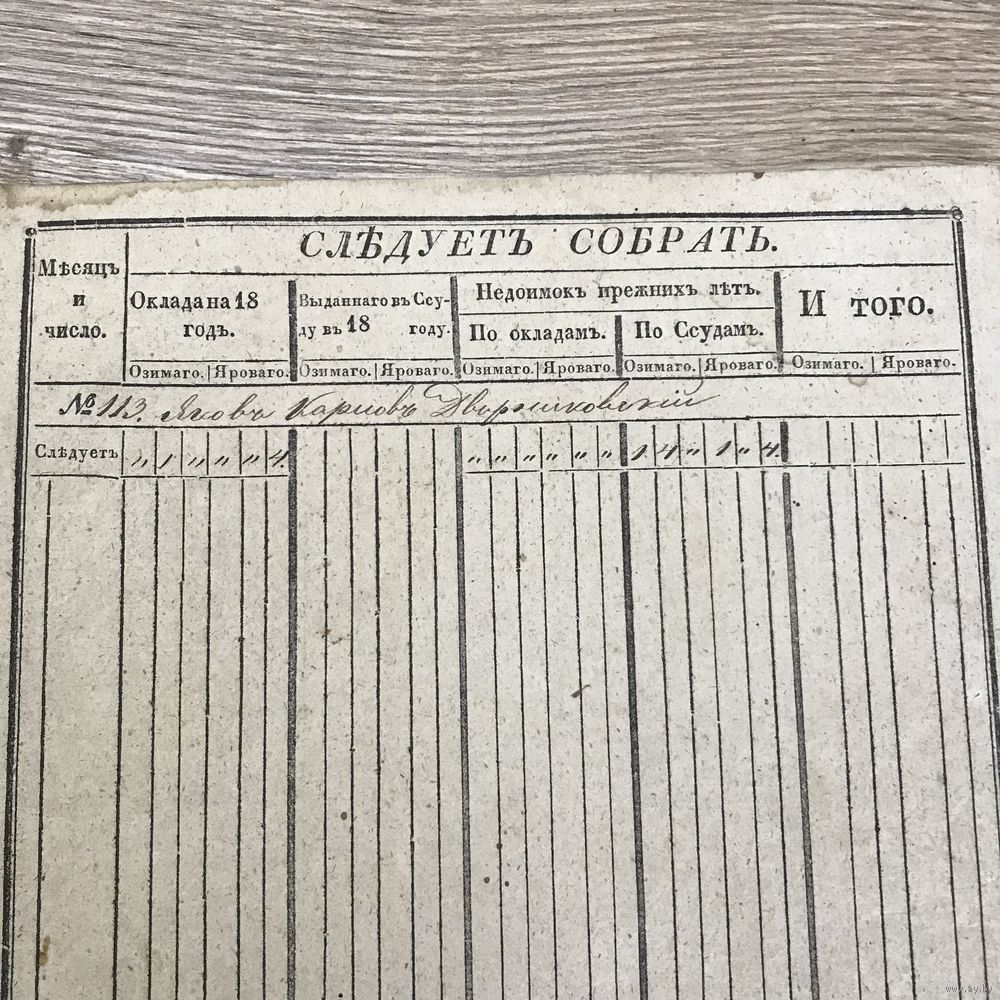 СЛѢДУЕТЪ СОБРАТЬ.
Мѣсяцъ и число.
Оклада на 18 годъ.
Выданнаго въ Ссу-
ду въ 18 году.
Недоимокъ прежнихъ лѣтъ.
По окладамъ.
По Ссудамъ.
И того.
Озимаго. Яроваго. Озимаго. Яроваго. Озимаго. Яроваго. Озимаго. Яроваго. Озимаго. Яроваго.
№ 113. Яковъ Карповъ Дворниковскій
Слѣдуетъ „ 1 „ „ „ 4. „ „ „ „ „ „ 1 4 „ 1 „ 4.
www.ay.by